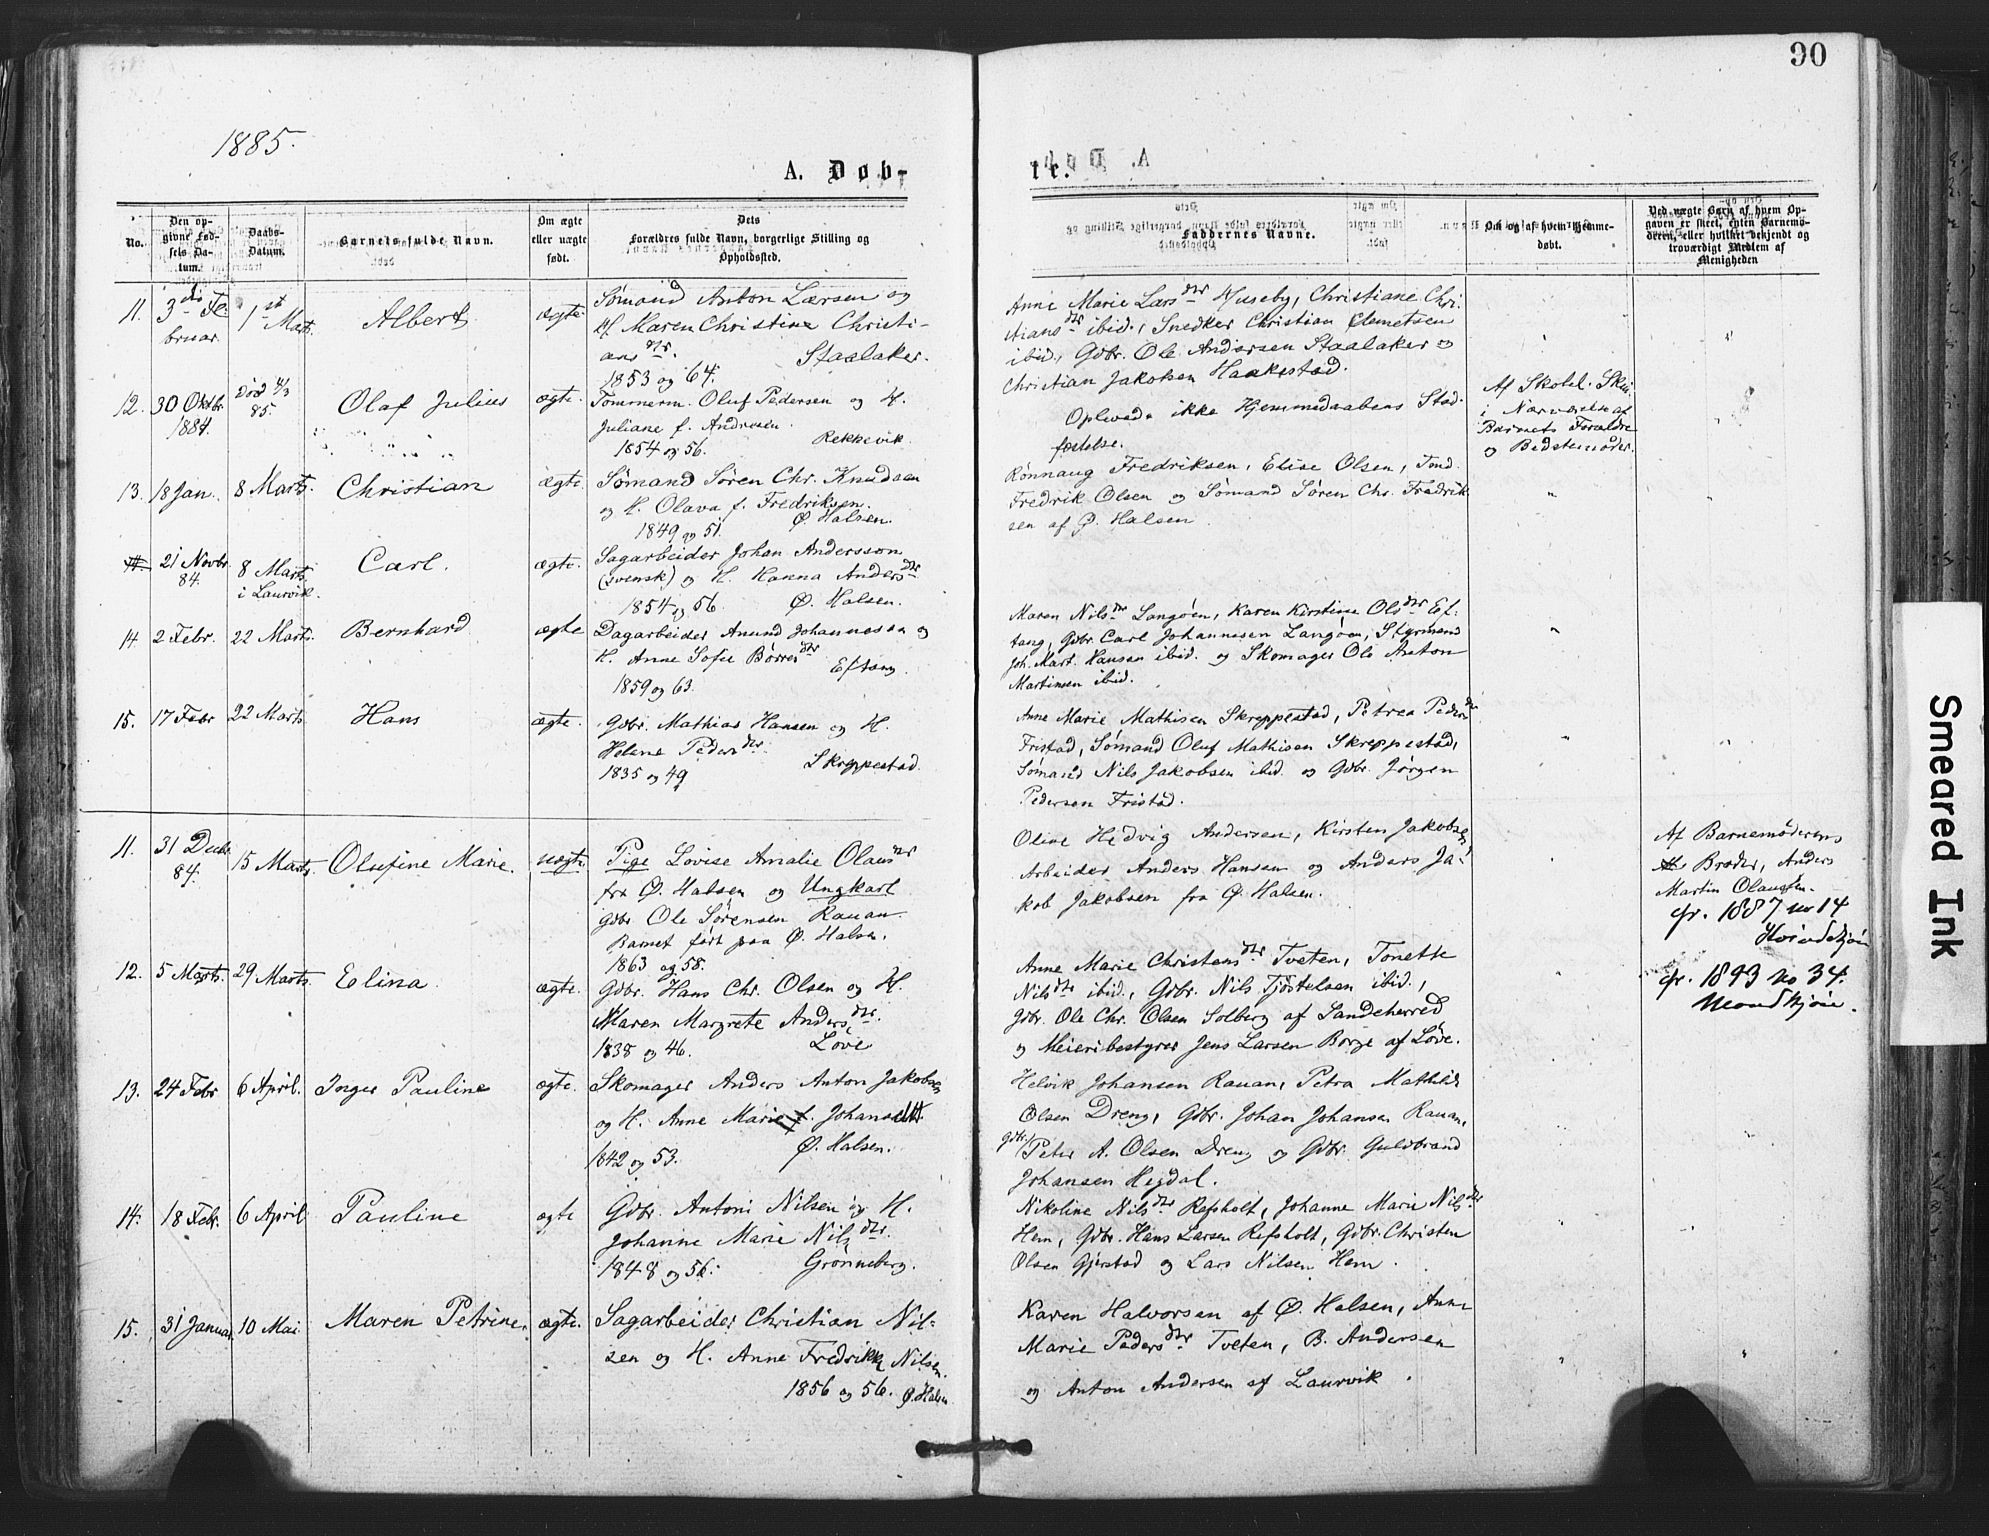 90
1885.
A. Døb-
te.
No.
Den op-
givne Fød-
sels Da-
tum.
Daabs-
Datum.
Barnets fulde Navn.
Om ægte
eller uægte
født.
Dets
Forældres fulde Navn, borgerlige Stilling og
Opholdssted.
Faddernes Navne.
Om og af hvem hjemme-
døbt.
Ved uægte Børn af hvem Op-
gaven er skeet, enten Barnemo-
deren, eller hvilket bekjendt og
troværdigt Medlem af
Menigheden
11. 3die Fe- 1st Albert ægte. Sømand Anton Larsen og
bruar. Mart. H. Maren Christine Christi-
ansdtr. Staalaker.
1853 og 64.
Anne Marie Larsdtr Huseby, Christiane Chri-
stiansdtr ibid., Snedker Christian Clemetsen
ibid., Gdbr. Ole Andersen Staalaker og
Christian Jakobsen Haakestad.
12. 30 Oktbr. 1884. Død 4/3 85. Olaf Julius ægte. Tømmerm. Oluf Pedersen og H.
Juliane f. Andresen.
1854 og 56. Rekkevik
Oplevede ikke Hjemmedaabens Stad-
fæstelse.
Af Skolel. Skui
i Nærværelse af
Barnets Forældre
og Bedstemoder.
13. 18 Jan. 8 Marts. Christian ægte. Sømand Søren Chr. Knudsen
og H. Olava f. Fredriksen.
1849 og 51. Ø. Halsen.
Rønnaug Fredriksen, Elise Olsen, Tøm.
Fredrik Olsen og Sømand Søren Chr. Fredrik-
sen af Ø. Halsen.
21 Novbr. 84. 8 Marts i Laurvik. Carl. ægte. Sagarbeider Johan Andersson
(svensk) og H. Hanna Andersdtr
1854 og 56. Ø. Halsen.
14 2 Febr. 22 Marts. Bernhard ægte Dagarbeider Anund Johannesen og
H. Anne Sofie Børresdtr
1859 og 63. Eftang.
Maren Nilsdtr Langøen, Karen Kirstine Olsdtr Ef-
tang, Gdbr. Carl Johannesen Langøen, Styrmand
Joh. Mart. Hansen ibid. og Skomager Ole Anton
Martinsen ibid.
15. 17 Febr 22 Marts. Hans ægte. Gdbr. Mathias Hansen og H.
Helene Pedersdtr.
1835 og 49 Skreppestad.
Anne Marie Mathisen Skreppestad, Petrea Pedersdtr
Fristad, Sømand Oluf Mathisen Skreppestad,
Sømand Nils Jakobsen ibid. og Gdbr. Jørgen
Pedersen Fristad.
11. 31 Decbr. 84. 15 Marts. Olufine Marie. uægte. Pige Lovise Amalie Olausdtr
fra Ø. Halsen og Ungkarl
Gdbr. Ole Sørensen Rauan.
Barnet født paa Ø. Halsen.
1863 og 58.
Oline Hedvig Andersen, Kirsten Jakobsen
Arbeider Anders Hansen og Anders Ja-
kob Jakobsen fra Ø. Halsen.
Af Barnemoderens
Broder, Anders
Martin Olaussen.
cfr. 1887 no 14
Kvindekjøn
12. 5 Marts. 29 Marts. Elina. ægte. Gdbr. Hans Chr. Olsen og H.
Maren Margrete Andersdtr.
1838 og 46. Løve
Anne Marie Christensdtr Tveten, Tonette
Nilsdtr ibid., Gdbr. Nils Tjøstelsen ibid.,
Gdbr. Ole Chr. Olsen Solberg af Sandeherred
og Meieribestyrer Jens Larsen Børge af Løve.
cfr. 1893 no 34.
Mandkjøn.
13. 24 Febr 6 April. Inger Pauline ægte. Skomager Anders Anton Jakobsen
og H. Anne Marie f. Johansen
1842 og 53. Ø. Halsen.
Helvik Johansen Rauan, Petra Mathilde
Olsen Dreng, Gdbr. Johan Johansen Rauan,
Gdbr. Peter A. Olsen Dreng og Gdbr Guldbrand
Johansen Hegdal.
14. 18 Febr. 6 April Pauline ægte Gdbr. Antoni Nilsen og H.
Johanne Marie Nilsdtr.
1848 og 56. Grønneberg.
Nikoline Nilsdtr. Refsholt, Johanne Marie Nilsdtr
Hem, Gdbr. Hans Larsen Refsholt, Gdbr. Christen
Olsen Gjerstad og Lars Nilsen Hem.
15. 31 Januar 10 Mai. Maren Petrine. ægte. Sagarbeider Christian Nil-
sen og H. Anne Fredrikke Nilsen.
1856 og 56. Ø. Halsen
Karen Halvorsen af Ø. Halsen, Anne
Marie Pedersdtr Tveten, B. Andersen
og Anton Andersen af Laurvik.
Smeared Ink